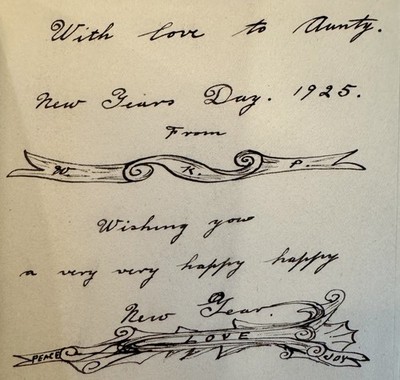 With love to Aunty.
New Years Day. 1925.
From
W. K. P.
Wishing you
a very very happy happy
New Year.
LOVE
PEACE JOY